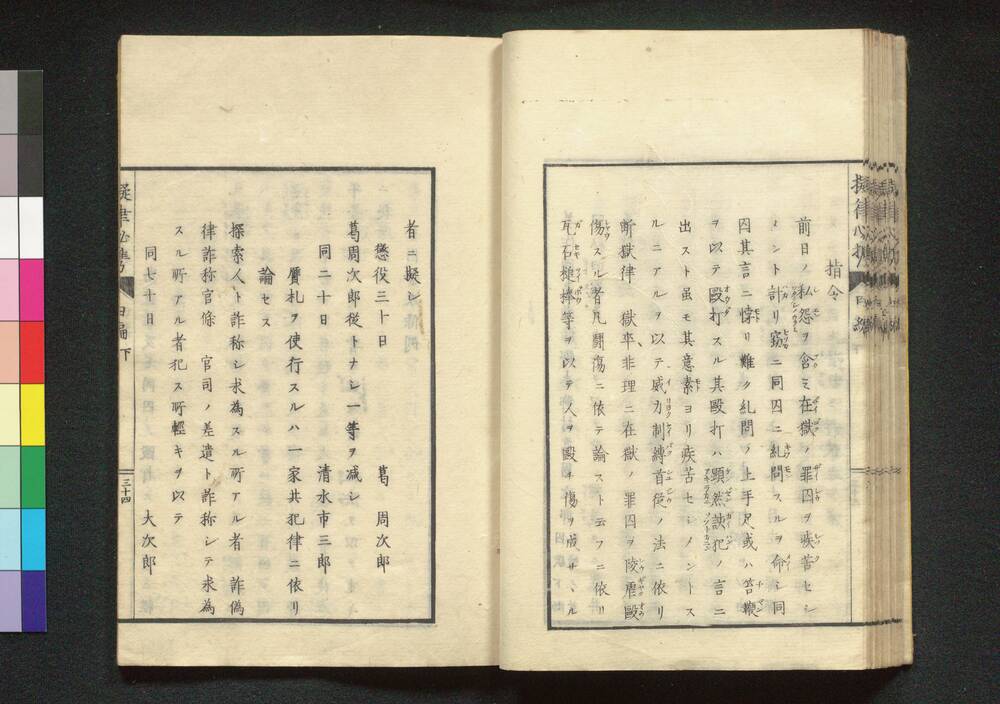 指令
前日ノ私怨ヲ含ミ在獄ノ罪囚ヲ疾苦セシ
メント計リ窃ニ同囚ニ糺問スルヲ命シ同
囚其言ニ悖リ難ク糺問ノ上手足或ハ笞鞭
ヲ以テ毆打スル其毆打ハ顕然該犯ノ言ニ
出スト虽モ其意素ヨリ疾苦セシメントス
ルニアルヲ以テ威力制縛首従ノ法ニ依リ
断獄律 獄卒非理ニ在獄ノ罪囚ヲ陵虐毆
傷スル者凡闘傷ニ依テ論スト云フニ依リ
瓦石槌棒等ヲ以テ人ヲ毆チ傷ヲ成サヽル
者ニ擬シ
懲役三十日 葛 周次郎
葛周次郎従トナシ一等ヲ减シ
同二十日 清水市三郎
贋札ヲ使行スルハ一家共犯律ニ依リ
論セス
探索人ト詐称シ求為スル所アル者 詐偽
律詐称官條 官司ノ差遣ト詐称シテ求為
スル所アル者犯ス所輕キヲ以テ
同七十日 大次郎
下
三十四